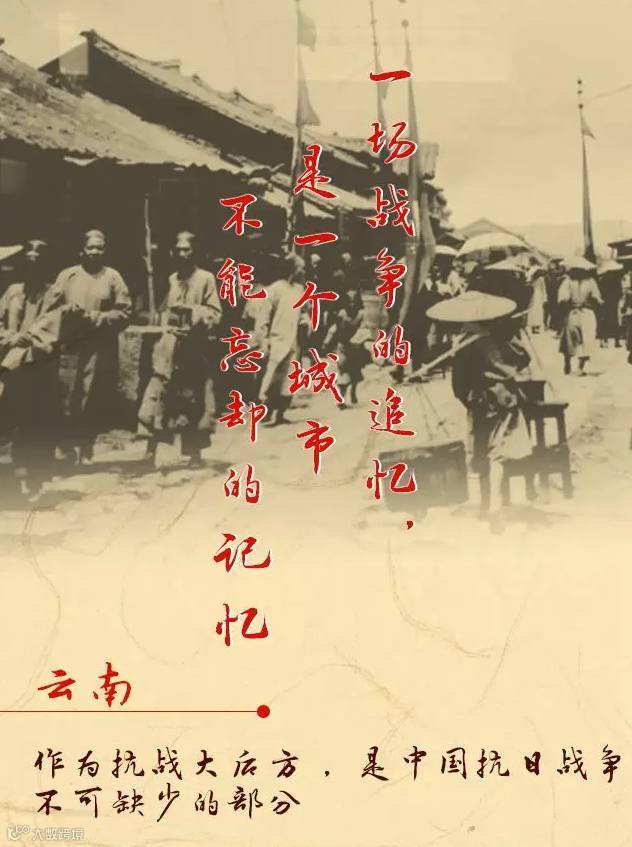 一场战争的追忆，
是一个城市
不能忘却的记忆
云南
作为抗战大后方，是中国抗日战争
不可缺少的部分
大数跨境